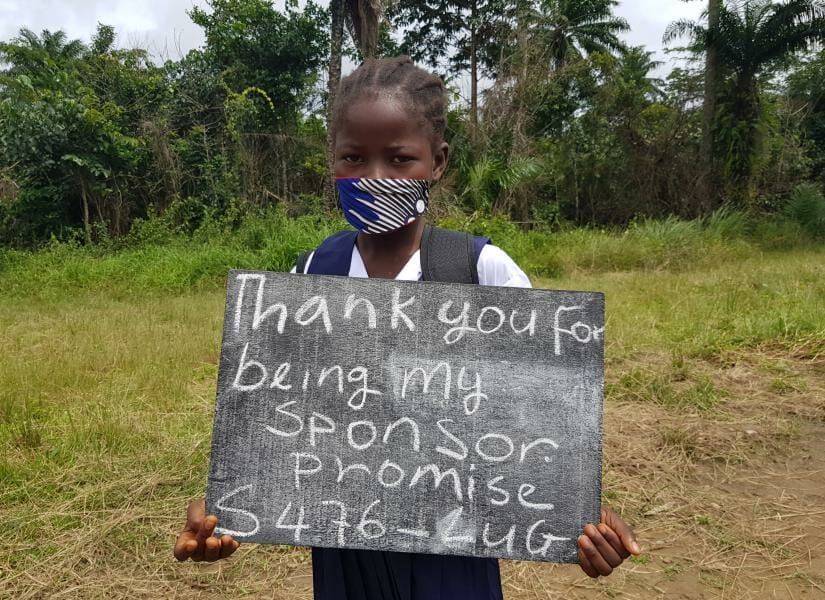 Thank you for
being my
Sponsor.
Promise
S476-LUG